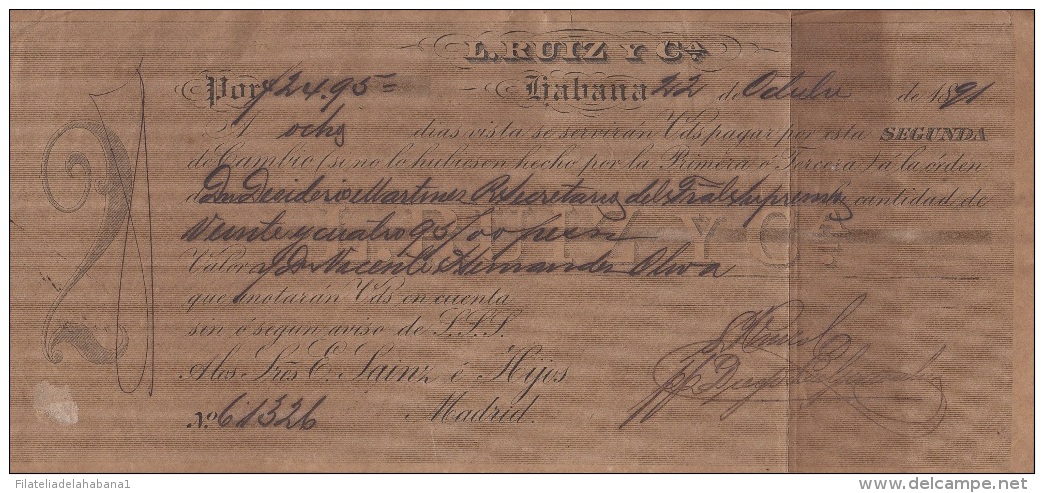 L. RUIZ Y Cª
Por $24.95= Habana 22 de Octubre de 1891
A ocho dias vista se servirán Vds pagar por esta SEGUNDA
de Cambio (si no lo hubiesen hecho por la Primera ó Tercera) a la órden
de Dn Desiderio Martinez Secretario del Tral Supremo la cantidad de
Veinte y cuatro 95/100 pesos
L. RUIZ Y Cª
Valor Dn Vicente Hernandez Oliva
que anotarán Vds en cuenta
sin ó segun aviso de S.S.S.
A los Srēs E. Sainz é Hijos
Nº 61326 Madrid.
Filateliadelahabana1
delcampe.net